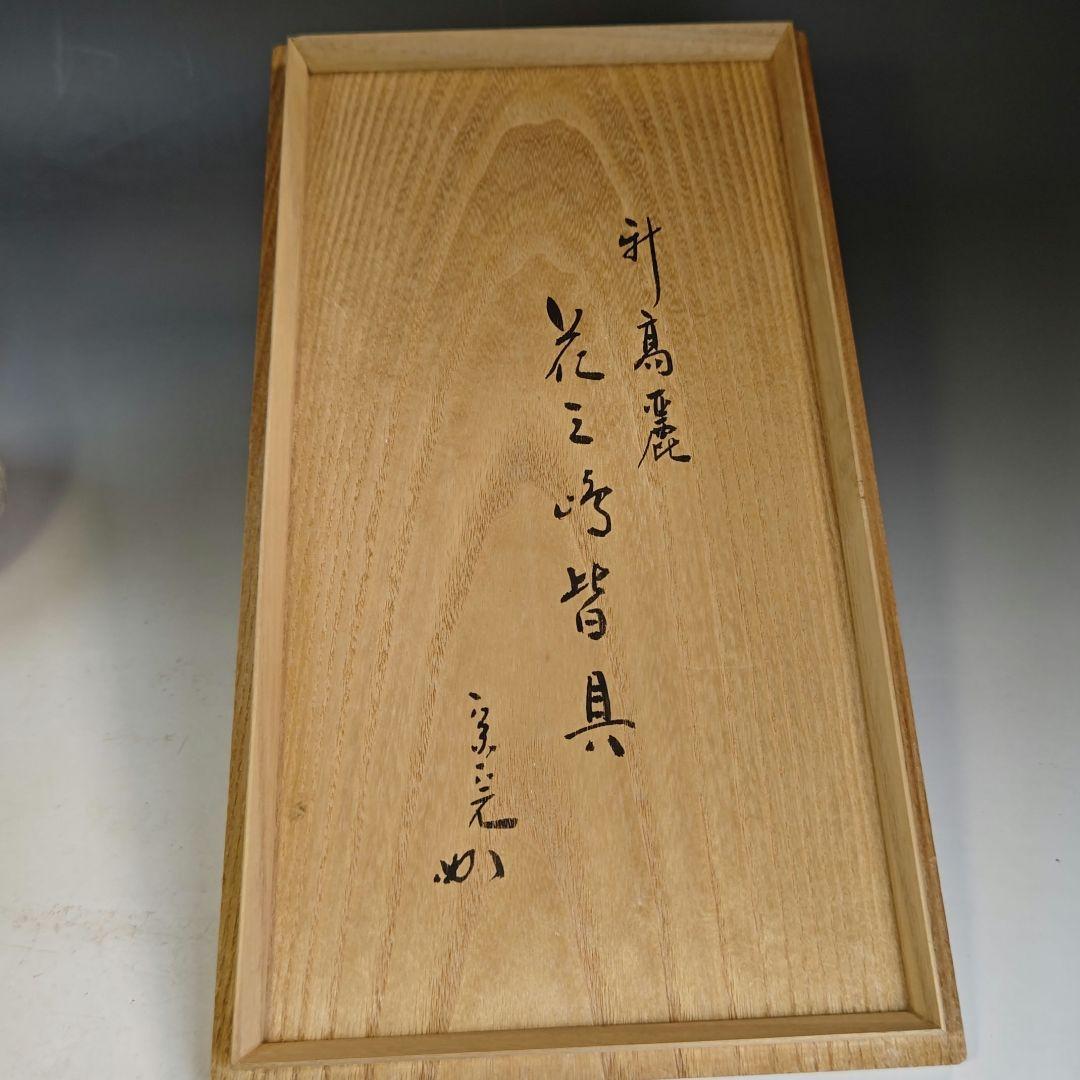 新高麗
花三嶋皆具
宗完